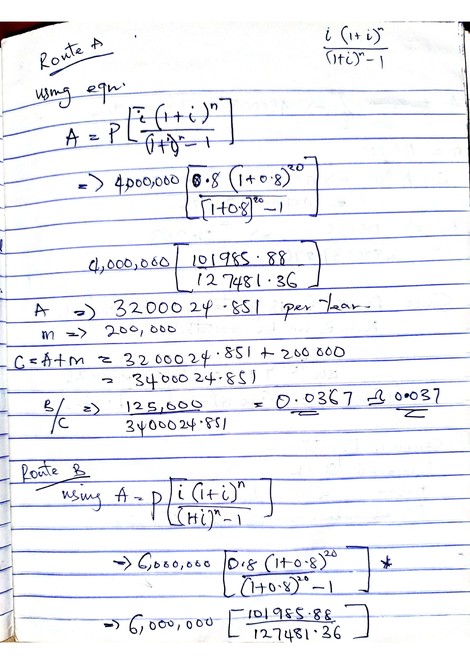 Route A
i (1+i)^n / (1+i)^n - 1
using eqn.
A = P [ i (1+i)^n / (1+i)^n - 1 ]
=> 4,000,000 [ 0.8 (1+0.8)^20 / [1+0.8]^20 - 1 ]
4,000,000 [ 101985.88 / 127481.36 ]
A => 3200024.851 per Year
m => 200,000
C = A+m = 3200024.851 + 200000
= 3400024.851
B/C => 125,000 / 3400024.851 = 0.0367 ≏ 0.037
Route B
using A = P [ i (1+i)^n / (1+i)^n - 1 ]
-> 6,000,000 [ 0.8 (1+0.8)^20 / (1+0.8)^20 - 1 ] *
-> 6,000,000 [ 101985.88 / 127481.36 ]